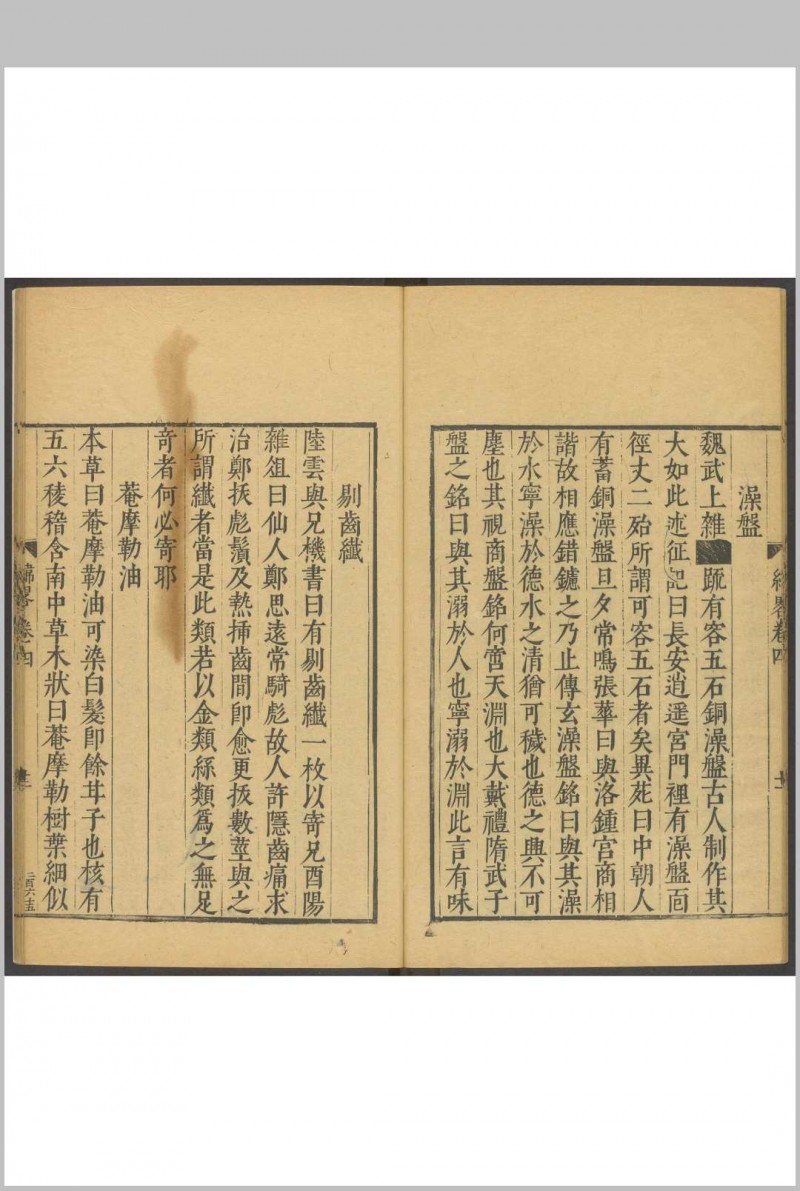 澡盤
魏武上雜䟽有容五石銅澡盤古人制作其
大如此述征記曰長安逍遥宮門裡有澡盤靣
徑丈二殆所謂可容五石者矣異苑曰中朝人
有蓄銅澡盤旦夕常鳴張華曰與洛鍾宮商相
諧故相應錯鑢之乃止傳玄澡盤銘曰與其澡
於水寧澡於德水之清猶可穢也德之興不可
塵也其視商盤銘何啻天淵也大戴禮隋武子
盤之銘曰與其溺於人也寧溺於淵此言有味
剔齒纖
陸雲與兄機書曰有剔齒纖一枚以寄兄酉陽
雜俎曰仙人鄭思遠常騎彪故人許隱齒痛求
治鄭㧞彪鬚及熱揷齒間即愈更㧞數莖與之
所謂纖者當是此類若以金類絲類爲之無足
竒者何必寄耶
菴摩勒油
本草曰菴摩勒油可染白髮即餘甘子也核有
五六稜嵇含南中草木狀曰菴摩勒樹葉細似
緯畧卷四
十二
二百六十五